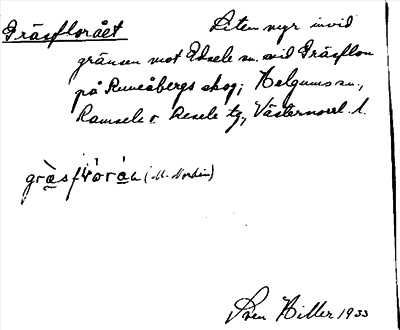 Gräsflorået Liten myr invid
gränsen mot Edsele sn. vid Gräsflon
på Runeåbergs skog; Helgums sn.,
Ramsele o. Resele tg., Västernorrl. l.
(M. Nordin)
Sven Hiller 1933